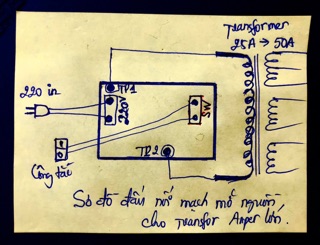 Transformer
25A → 50A
220 in
TP1
220V
SW
Công tắc
TP2
Sơ đồ đấu nối mạch mở nguồn
cho Transfor Amper lớn.